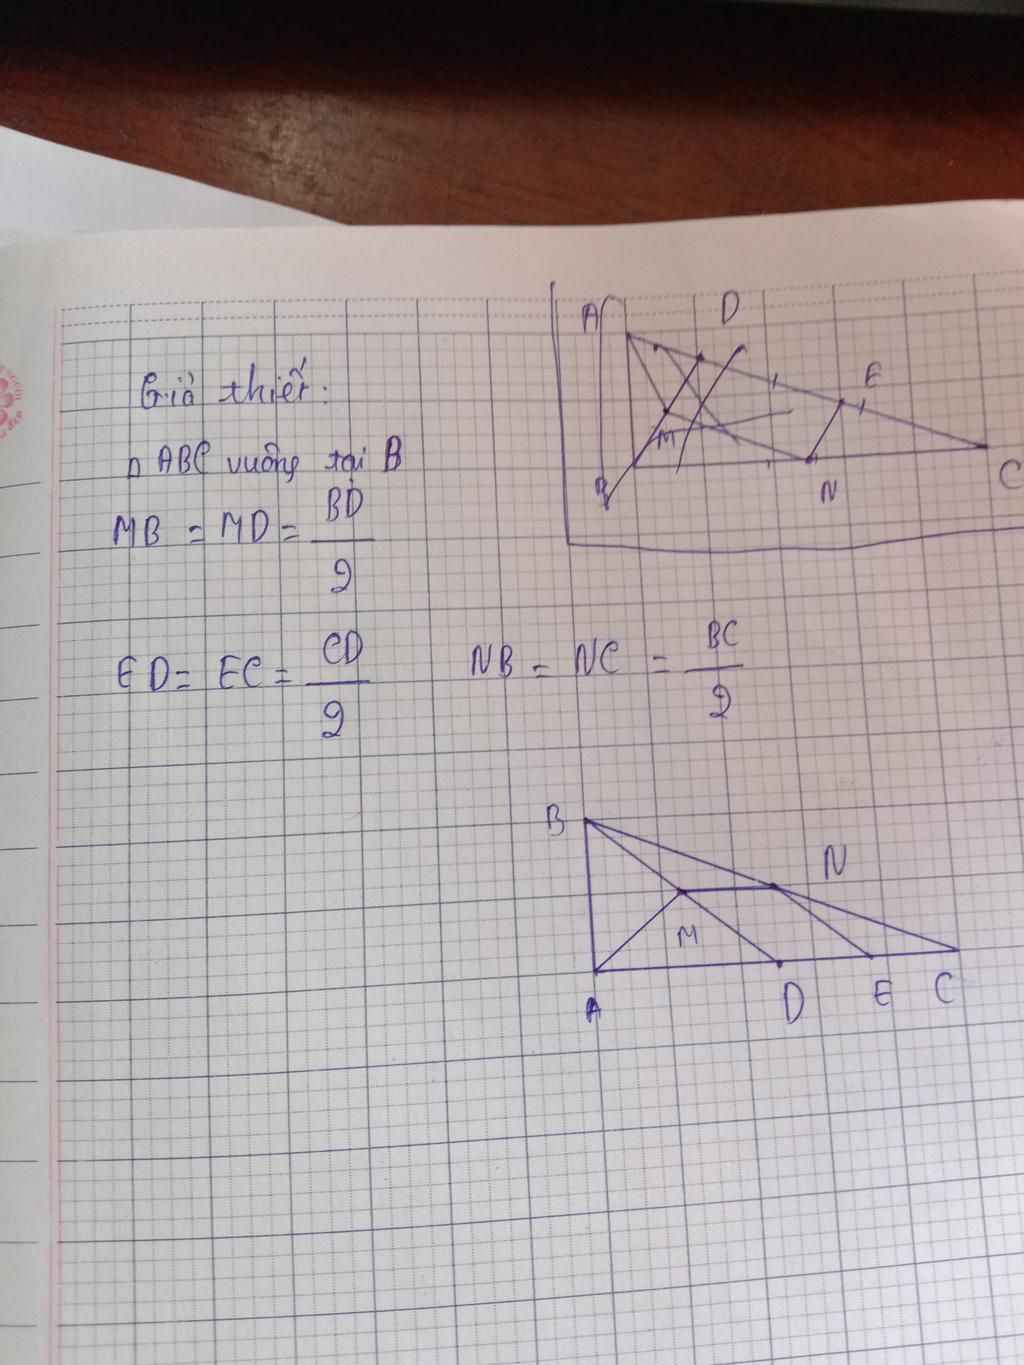 A D
E
M
B N C
Giả thiết:
△ ABC vuông tại B
MB = MD = BD/2
ED = EC = CD/2 NB = NC = BC/2
B N
M
A D E C